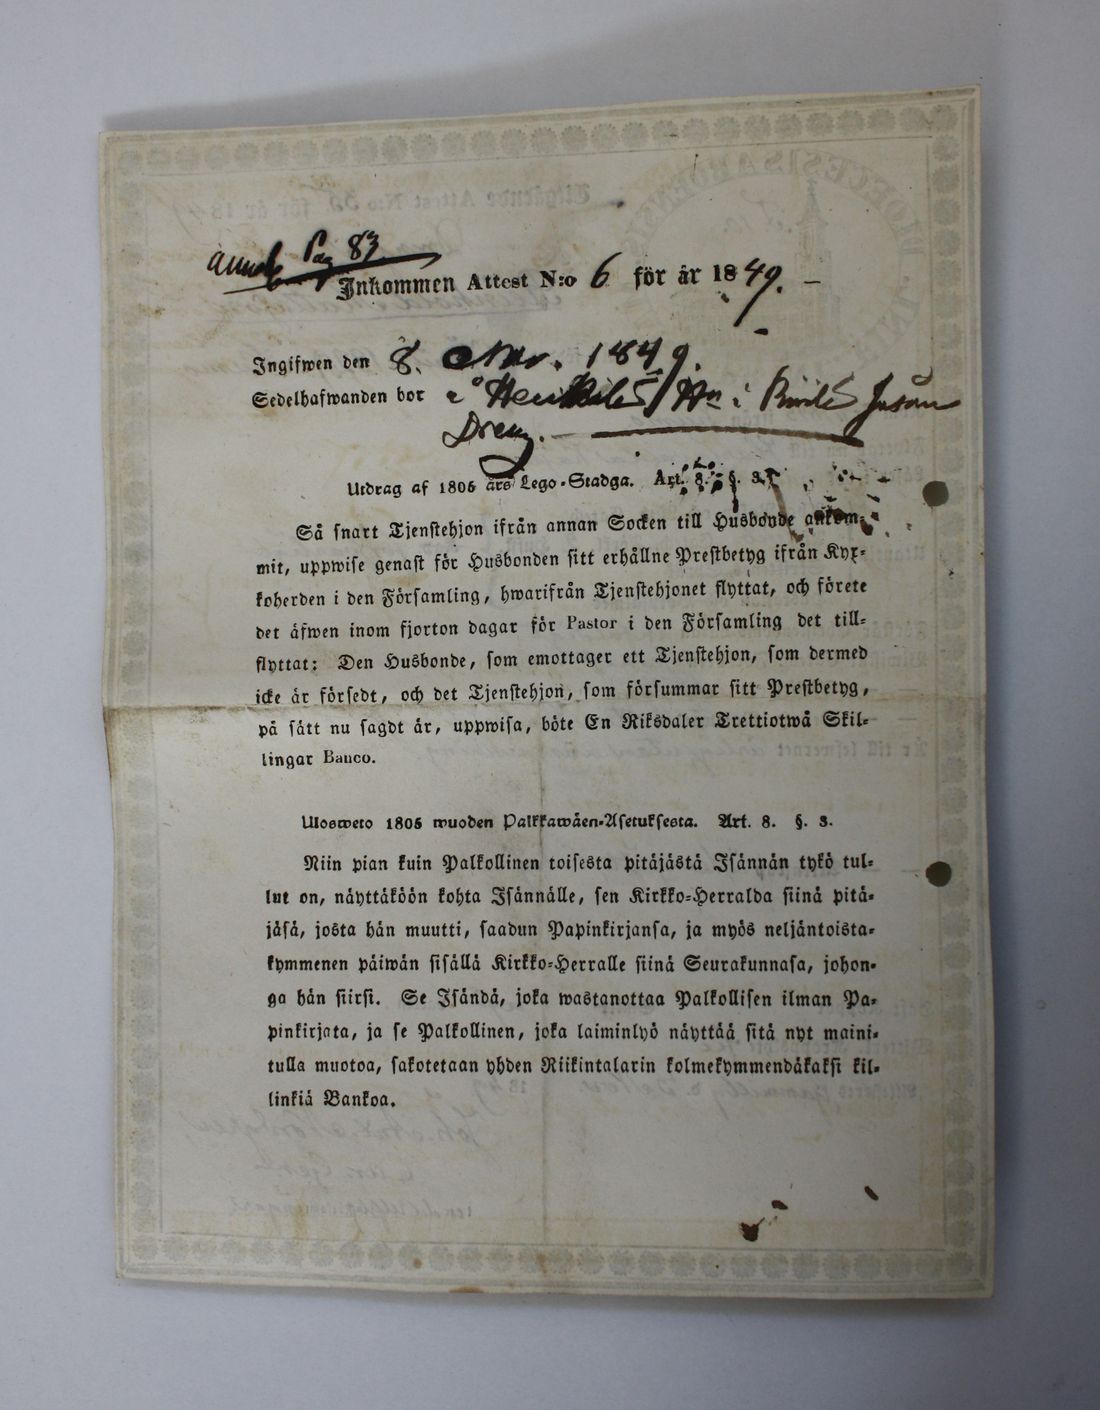 Pag 83
Inkommen Attest N:o 6 för år 1849.
Ingifwen den 8. 1849.
Sedelhafwanden bor å i
Dreng.
Utdrag af 1805 års Lego-Stadga. Art. 8. §. 3.
Så snart Tjenstehjon ifrån annan Socken till Husbonde ankom-
mit, uppwise genast för Husbonden sitt erhållne Prestbetyg ifrån Kyr-
koherden i den Församling, hwarifrån Tjenstehjonet flyttat, och förete
det äfwen inom fjorton dagar för Pastor i den Församling det till-
flyttat: Den Husbonde, som emottager ett Tjenstehjon, som dermed
icke är försedt, och det Tjenstehjon, som försummar sitt Prestbetyg,
på sätt nu sagdt är, uppwisa, böte En Riksdaler Trettiotwå Skil-
lingar Banco.
Ulosweto 1805 wuoden Palkkawäen-Asetuksesta. Art. 8. §. 3.
Niin pian kuin Palkollinen toisesta pitäjästä Isännän tykö tul-
lut on, näyttäköön kohta Isännälle, sen Kirkko-Herralda siinä pitä-
jäsä, josta hän muutti, saadun Papinkirjansa, ja myös neljäntoista-
kymmenen päiwän sisällä Kirkko-Herralle siinä Seurakunnasa, johon-
ga hän siirsi. Se Isändä, joka wastanottaa Palkollisen ilman Pa-
pinkirjata, ja se Palkollinen, joka laiminlyö näyttää sitä nyt maini-
tulla muotoa, sakotetaan yhden Riikintalarin kolmekymmendäkaksi kil-
linkiä Bankoa.